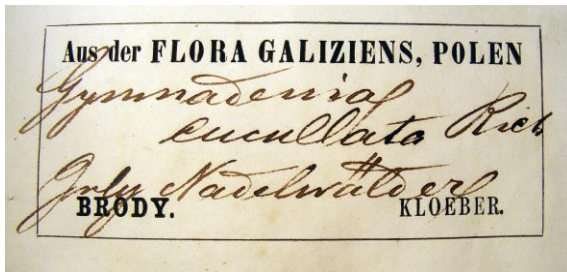 Aus der FLORA GALIZIENS, POLEN
Gymnadenia
cucullata Rich
July Nadelwälder
BRODY. KLOEBER.